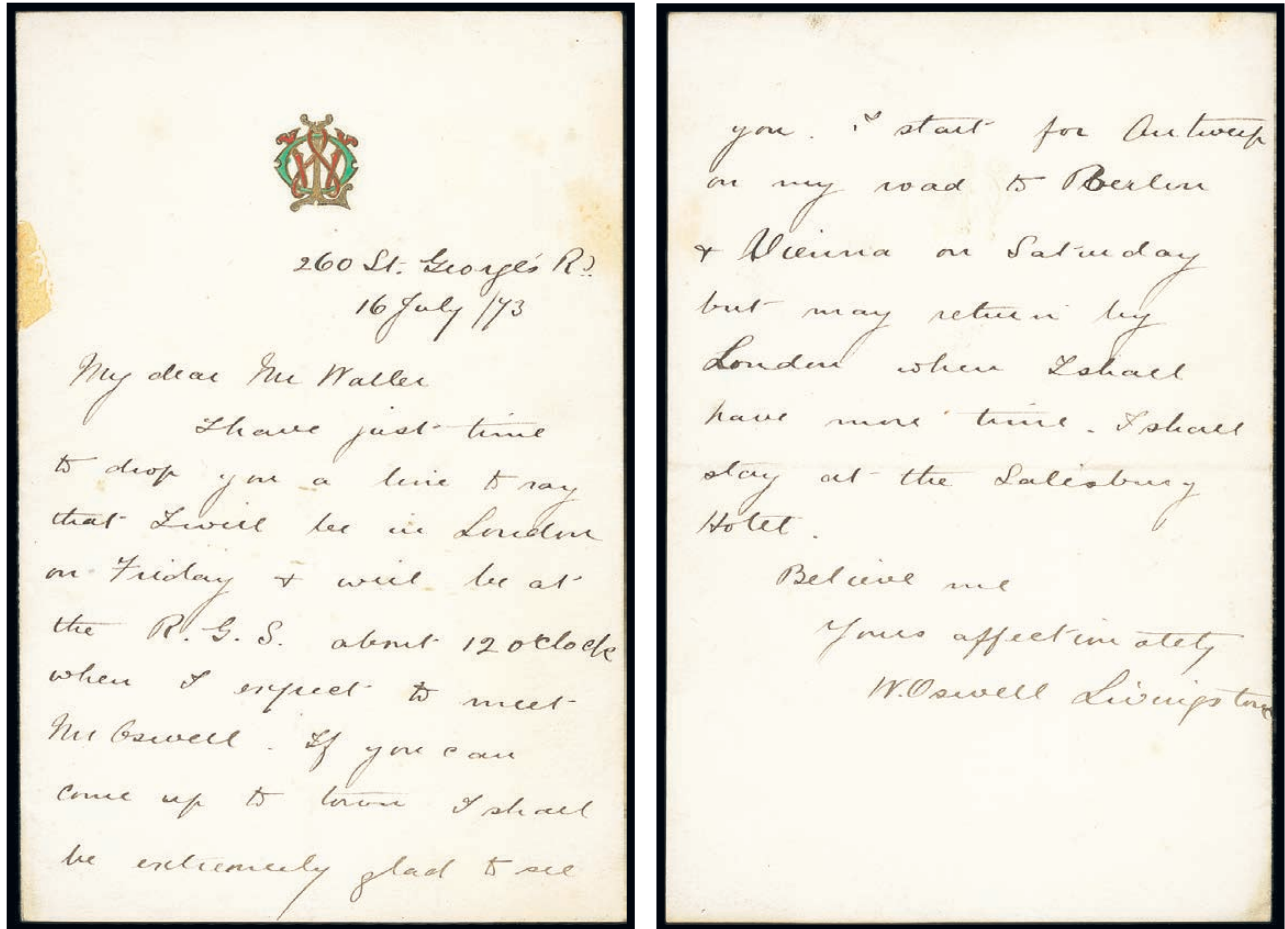 260 St. George's Rd.
16 July /73
My dear Mr Waller
I have just time
to drop you a line to say
that I will be in London
on Friday & will be at
the R. G. S. about 12 o'clock
when I expect to meet
Mr Oswell. If you can
come up to town I shall
be extremely glad to see
you. I start for Antwerp
on my road to Berlin
& Vienna on Saturday
but may return by
London when I shall
have more time. I shall
stay at the Salisbury
Hotel.
Believe me
Yours affectionately
W. Oswell Livingstone